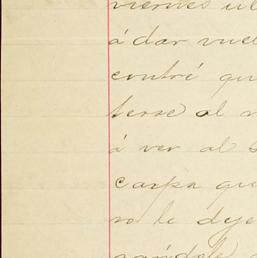 viernes ul
á dar vuel
contré qu
terse al
á ver al s
carpa que
ro le dye